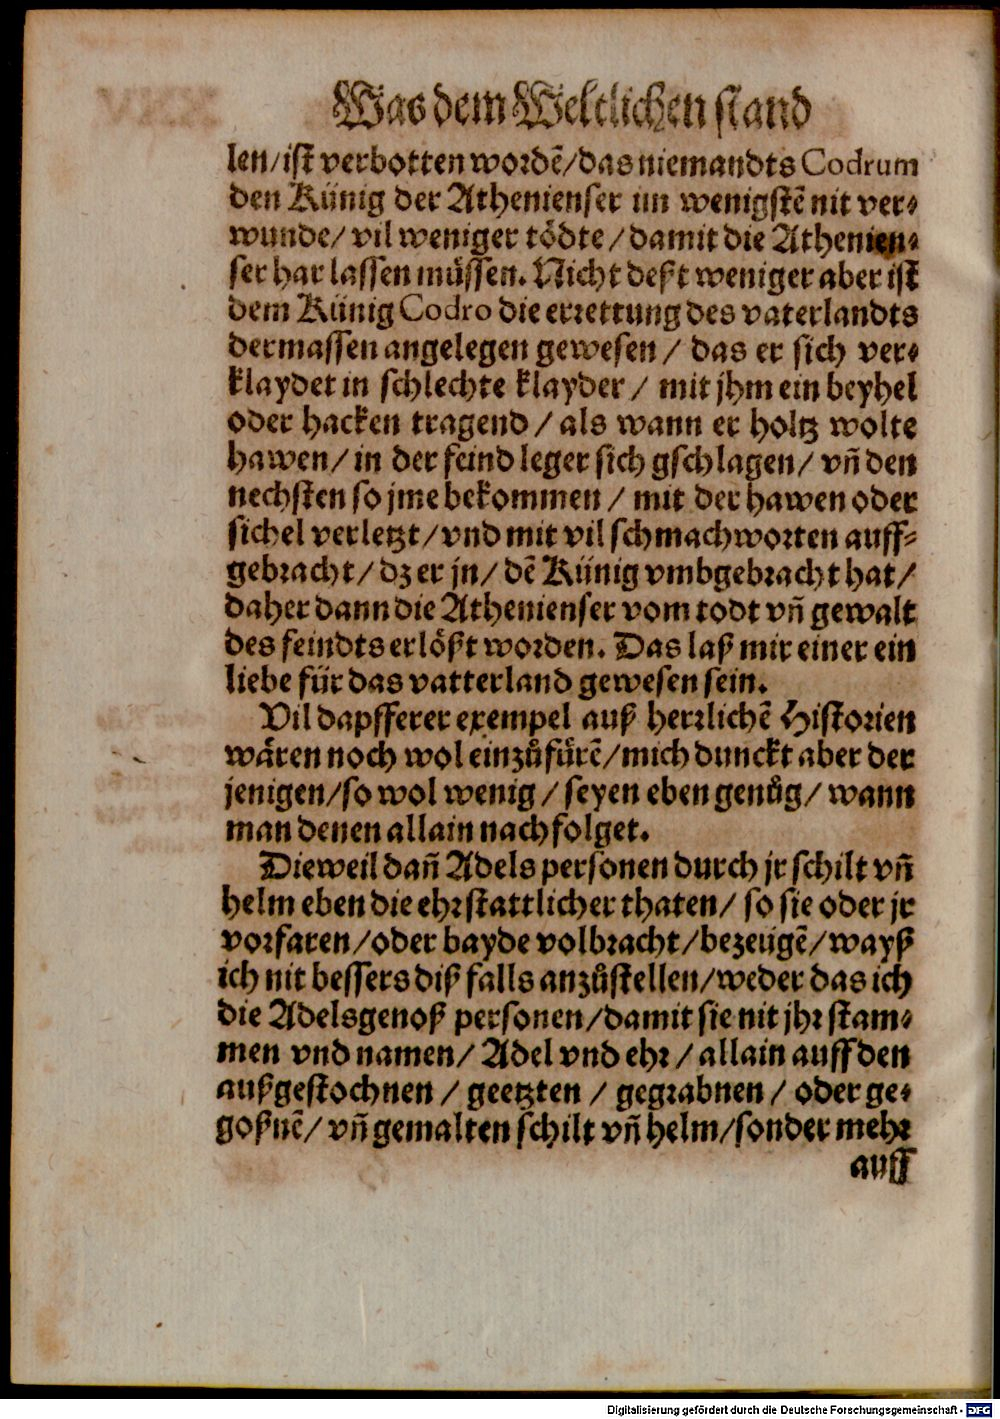 Was dem Weltlichen stand
len/ist verbotten wordē/das niemandts Codrum
den Künig der Athenienser im wenigstē nit ver⸗
wunde/ vil weniger tödte/damit die Athenien⸗
ser har lassen müssen. Nicht deßt weniger aber ist
dem Künig Codro die errettung des vaterlandts
dermassen angelegen gewesen/ das er sich ver⸗
klaydet in schlechte klayder/ mit jhm ein beyhel
oder hacken tragend/als wann er holtz wolte
hawen/in der feind leger sich gschlagen/ vñ den
nechsten so jme bekommen/ mit der hawen oder
sichel verletzt/vnd mit vil schmachworten auff⸗
gebracht/dz er jn/dē Künig vmbgebracht hat/
daher dann die Athenienser vom todt vñ gewalt
des feindts erlößt worden. Das laß mir einer ein
liebe für das vatterland gewesen sein.
Vil dapfferer exempel auß herrlichē Historien
wären noch wol einzůfürē/mich dunckt aber der
jenigen/so wol wenig/seyen eben genůg/wann
man denen allain nachfolget.
Dieweil dañ Adels personen durch jr schilt vñ
helm eben die ehrstattlicher thaten/ so sie oder jr
vorfaren/oder bayde volbracht/bezeügē/wayß
ich nit bessers diß falls anzůstellen/weder das ich
die Adelsgenoß personen/damit sie nit jhr stam⸗
men vnd namen/ Adel vnd ehr/allain auff den
außgestochnen/ geetzten/ gegrabnen/ oder ge⸗
goßnē/vñ gemalten schilt vñ helm/sonder mehr
auff
Digitalisierung gefördert durch die Deutsche Forschungsgemeinschaft - DFG